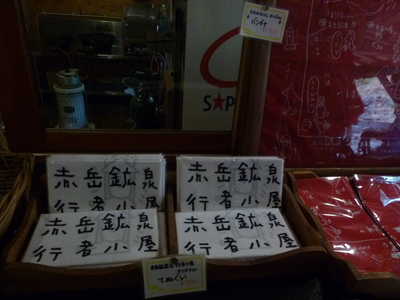 バンダナ
S★P
赤岳鉱泉
行者小屋
赤岳鉱泉
行者小屋
赤岳鉱泉
行者小屋
赤岳鉱泉
行者小屋
てぬぐい